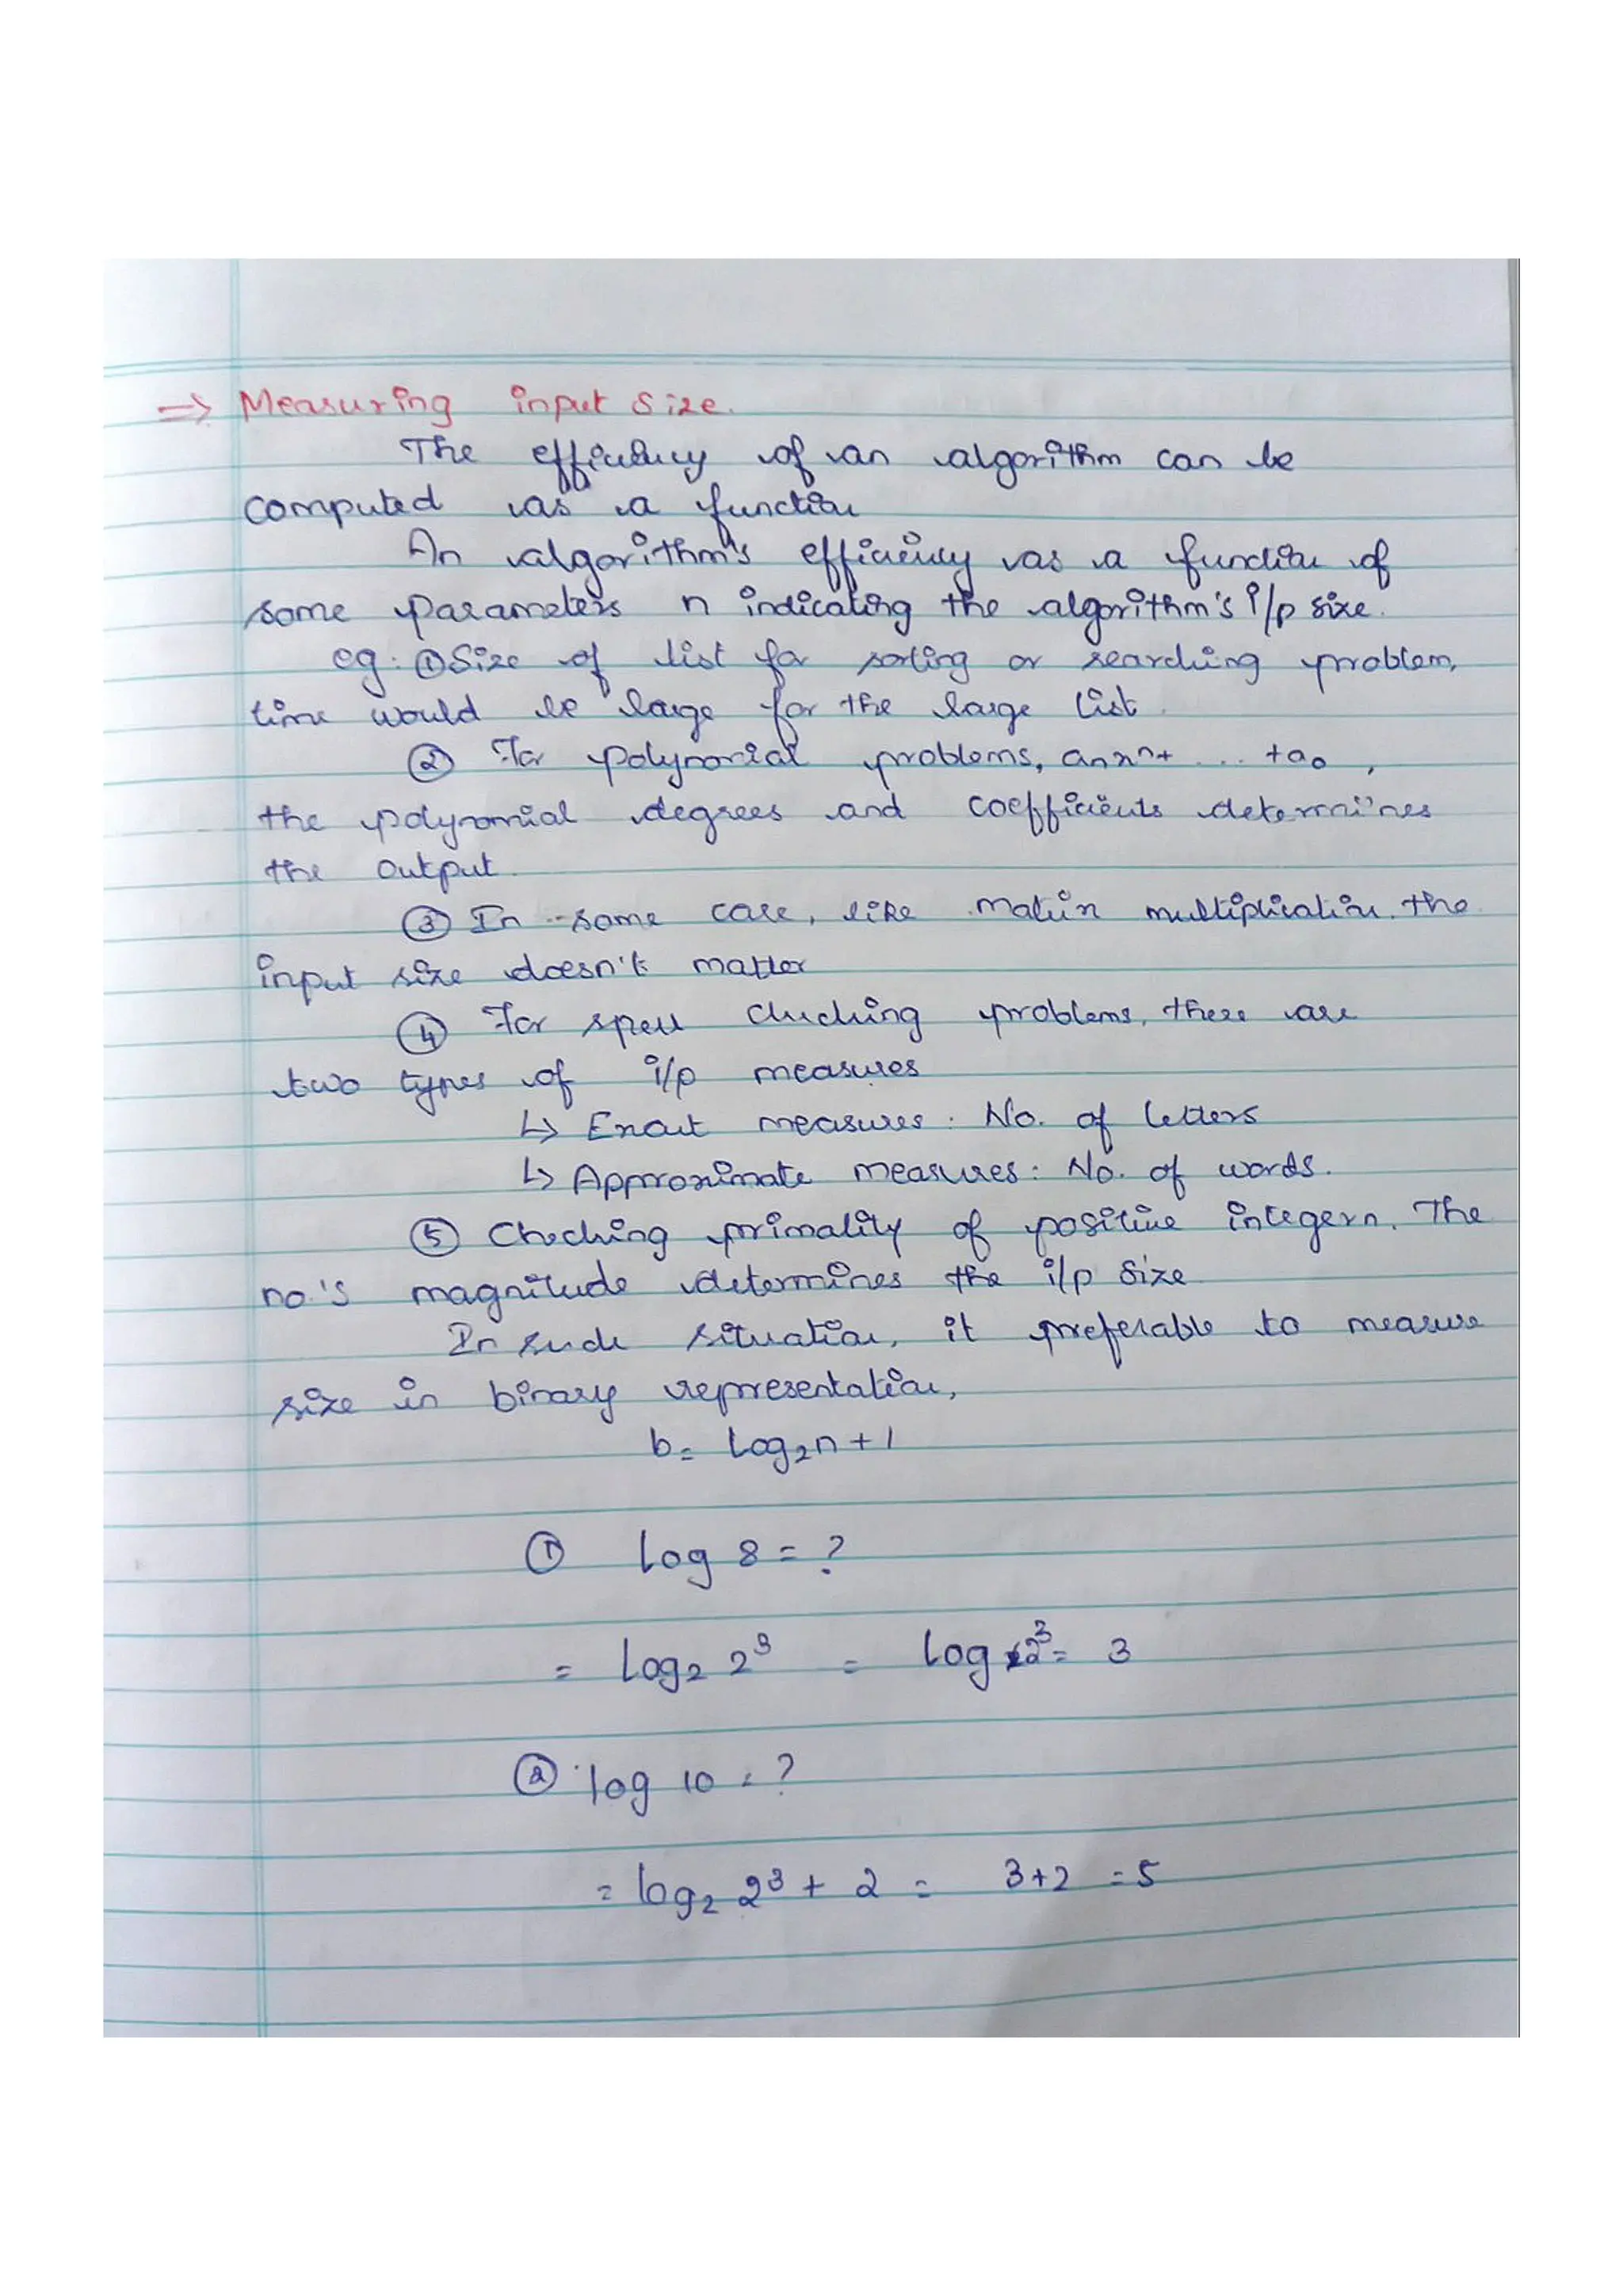 => Measuring input size.
The efficiency of an algorithm can be
computed as a function
An algorithm's efficiency as a function of
some parameters n indicating the algorithm's i/p size.
eg: ① Size of list for sorting or searching problem,
time would be large for the large list.
② For polynomial problems, anxⁿ+ ... +a₀,
the polynomial degrees and coefficients determines
the output.
③ In some case, like matrix multiplication. the
input size doesn't matter
④ For spell checking problems, there are
two types of i/p measures
↳ Exact measures: No. of letters
↳ Approximate measures: No. of words.
⑤ Checking primality of positive integer n. The
no.'s magnitude determines the i/p size
In such situation, it preferable to measure
size in binary representation,
b= log₂n+1
① log 8=?
= log₂ 2³ = log 2³= 3
② log 10=?
= log₂ 2³+ 2 = 3+2 =5